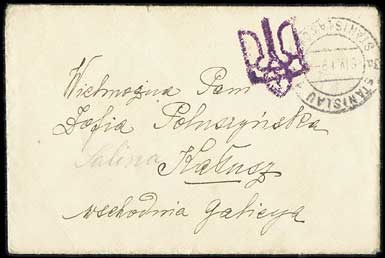 STANISLAU
Wielmożna Pani
Zofia Pohuszyńska
Salina
Kałusz
wschodnia Galicya